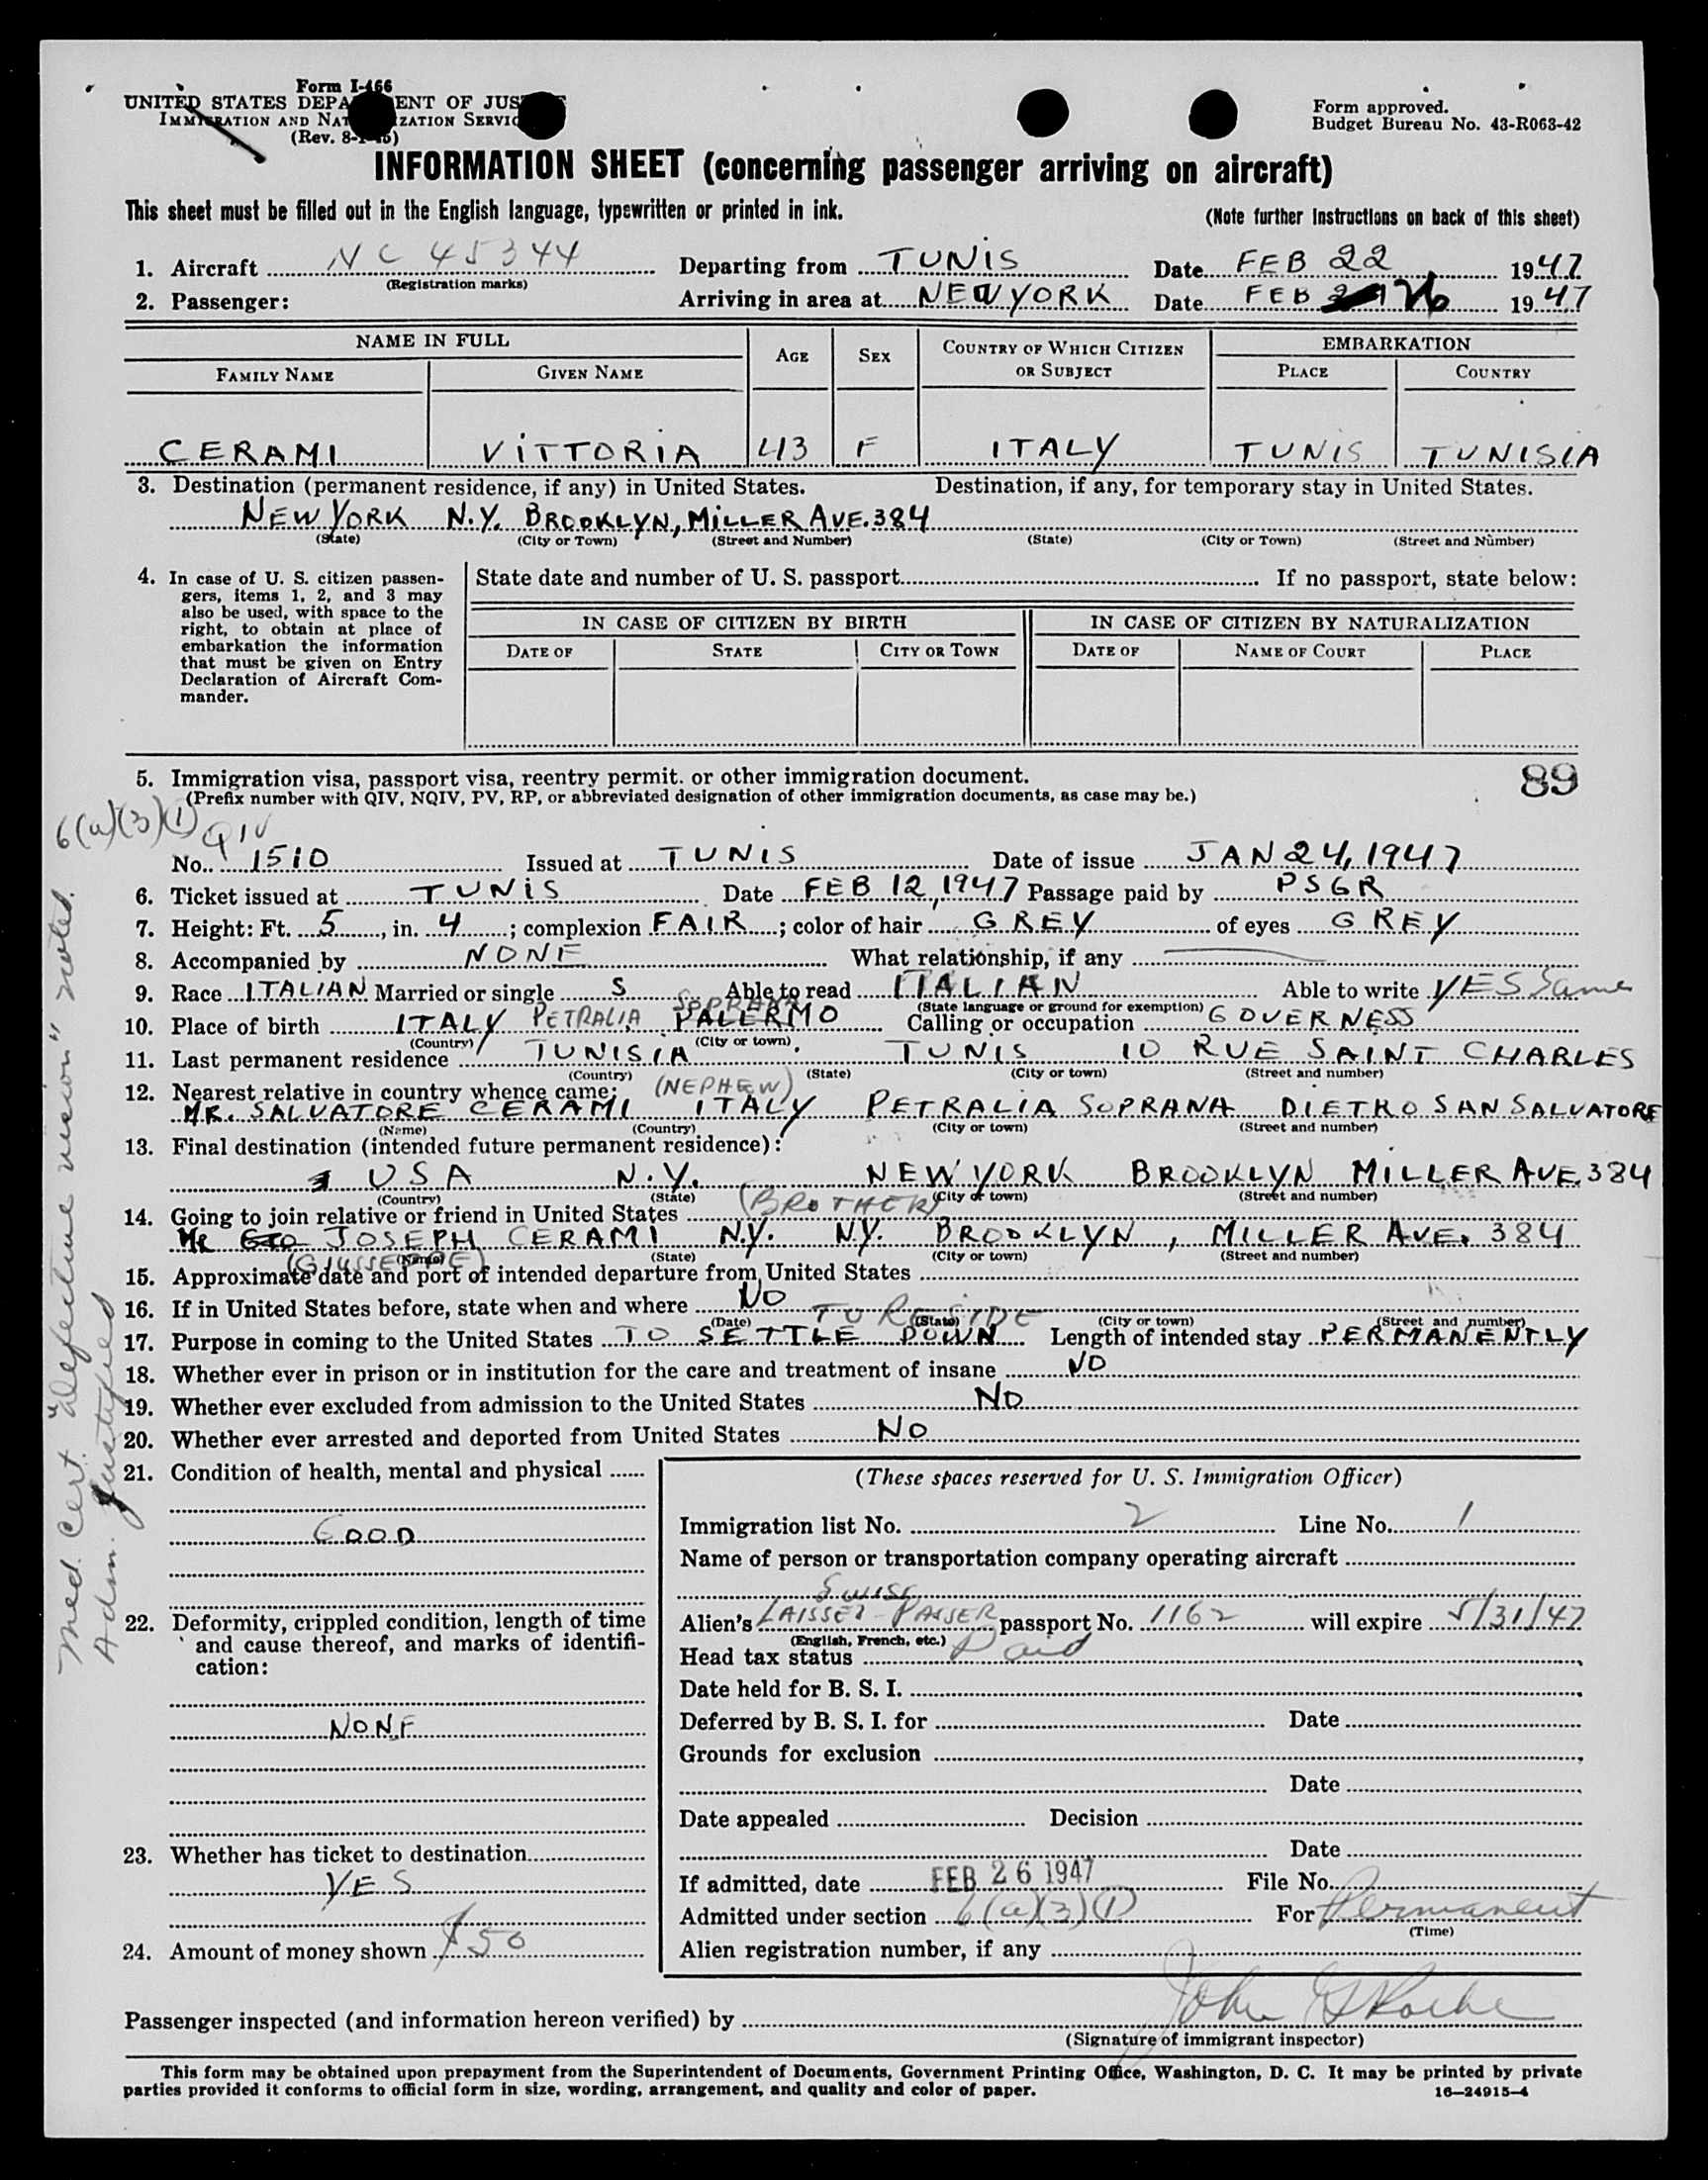 Form I-466
UNITED STATES DEPA ENT OF JUS
IMMIGRATION AND NAT ZATION SERVIC
(Rev. 8-
Form approved.
Budget Bureau No. 43-R063-42
INFORMATION SHEET (concerning passenger arriving on aircraft)
This sheet must be filled out in the English language, typewritten or printed in ink.
(Note further instructions on back of this sheet)
1. Aircraft NC 45344 Departing from TUNIS Date FEB 22 1947
(Registration marks)
2. Passenger: Arriving in area at NEW YORK Date FEB 26 1947
NAME IN FULL AGE SEX COUNTRY OF WHICH CITIZEN OR SUBJECT EMBARKATION
FAMILY NAME GIVEN NAME PLACE COUNTRY
CERAMI VITTORIA 43 F ITALY TUNIS TUNISIA
3. Destination (permanent residence, if any) in United States. Destination, if any, for temporary stay in United States.
NEW YORK N.Y. BROOKLYN, MILLER AVE. 384
(State) (City or Town) (Street and Number) (State) (City or Town) (Street and Number)
4. In case of U. S. citizen passen-
gers, items 1, 2, and 3 may
also be used, with space to the
right, to obtain at place of
embarkation the information
that must be given on Entry
Declaration of Aircraft Com-
mander.
State date and number of U. S. passport If no passport, state below:
IN CASE OF CITIZEN BY BIRTH IN CASE OF CITIZEN BY NATURALIZATION
DATE OF STATE CITY OR TOWN DATE OF NAME OF COURT PLACE
5. Immigration visa, passport visa, reentry permit. or other immigration document.
89
(Prefix number with QIV, NQIV, PV, RP, or abbreviated designation of other immigration documents, as case may be.)
6(a)(3)(1) QIV
No. 1510 Issued at TUNIS Date of issue JAN 24, 1947
6. Ticket issued at TUNIS Date FEB 12, 1947 Passage paid by PSGR
7. Height: Ft. 5, in. 4; complexion FAIR; color of hair GREY of eyes GREY
8. Accompanied by NONE What relationship, if any
9. Race ITALIAN Married or single S Able to read ITALIAN Able to write YES Same
SOPRANA (State language or ground for exemption)
10. Place of birth ITALY PETRALIA PALERMO Calling or occupation GOVERNESS
(Country) (City or town)
11. Last permanent residence TUNISIA TUNIS 10 RUE SAINT CHARLES
(Country) (State) (City or town) (Street and number)
12. Nearest relative in country whence came: (NEPHEW)
MR. SALVATORE CERAMI ITALY PETRALIA SOPRANA DIETRO SAN SALVATORE
(Name) (Country) (City or town) (Street and number)
13. Final destination (intended future permanent residence):
USA N.Y. NEW YORK BROOKLYN MILLER AVE. 384
(Country) (State) (City or town) (Street and number)
14. Going to join relative or friend in United States (BROTHER)
Mr JOSEPH CERAMI N.Y. N.Y. BROOKLYN, MILLER AVE. 384
(GIUSSEPPE) (Name) (State) (City or town) (Street and number)
15. Approximate date and port of intended departure from United States
16. If in United States before, state when and where NO
TO RESIDE (Date) (State) (City or town) (Street and number)
17. Purpose in coming to the United States TO SETTLE DOWN Length of intended stay PERMANENTLY
18. Whether ever in prison or in institution for the care and treatment of insane NO
19. Whether ever excluded from admission to the United States NO
20. Whether ever arrested and deported from United States NO
21. Condition of health, mental and physical
GOOD
22. Deformity, crippled condition, length of time
and cause thereof, and marks of identifi-
cation:
NONE
23. Whether has ticket to destination
YES
24. Amount of money shown $50
(These spaces reserved for U. S. Immigration Officer)
Immigration list No. 2 Line No. 1
Name of person or transportation company operating aircraft
Swiss
Alien's LAISSEZ-PASSER passport No. 1162 will expire 5/31/47
(English, French, etc.)
Head tax status Paid
Date held for B. S. I.
Deferred by B. S. I. for Date
Grounds for exclusion
Date
Date appealed Decision
Date
If admitted, date FEB 26 1947 File No.
Admitted under section 6(a)(3)(1) For Permanent
(Time)
Alien registration number, if any
Passenger inspected (and information hereon verified) by John
(Signature of immigrant inspector)
This form may be obtained upon prepayment from the Superintendent of Documents, Government Printing Office, Washington, D. C. It may be printed by private
parties provided it conforms to official form in size, wording, arrangement, and quality and color of paper. 16—24915-4
Med. Cert. "defective vision" noted.
Adm. justified